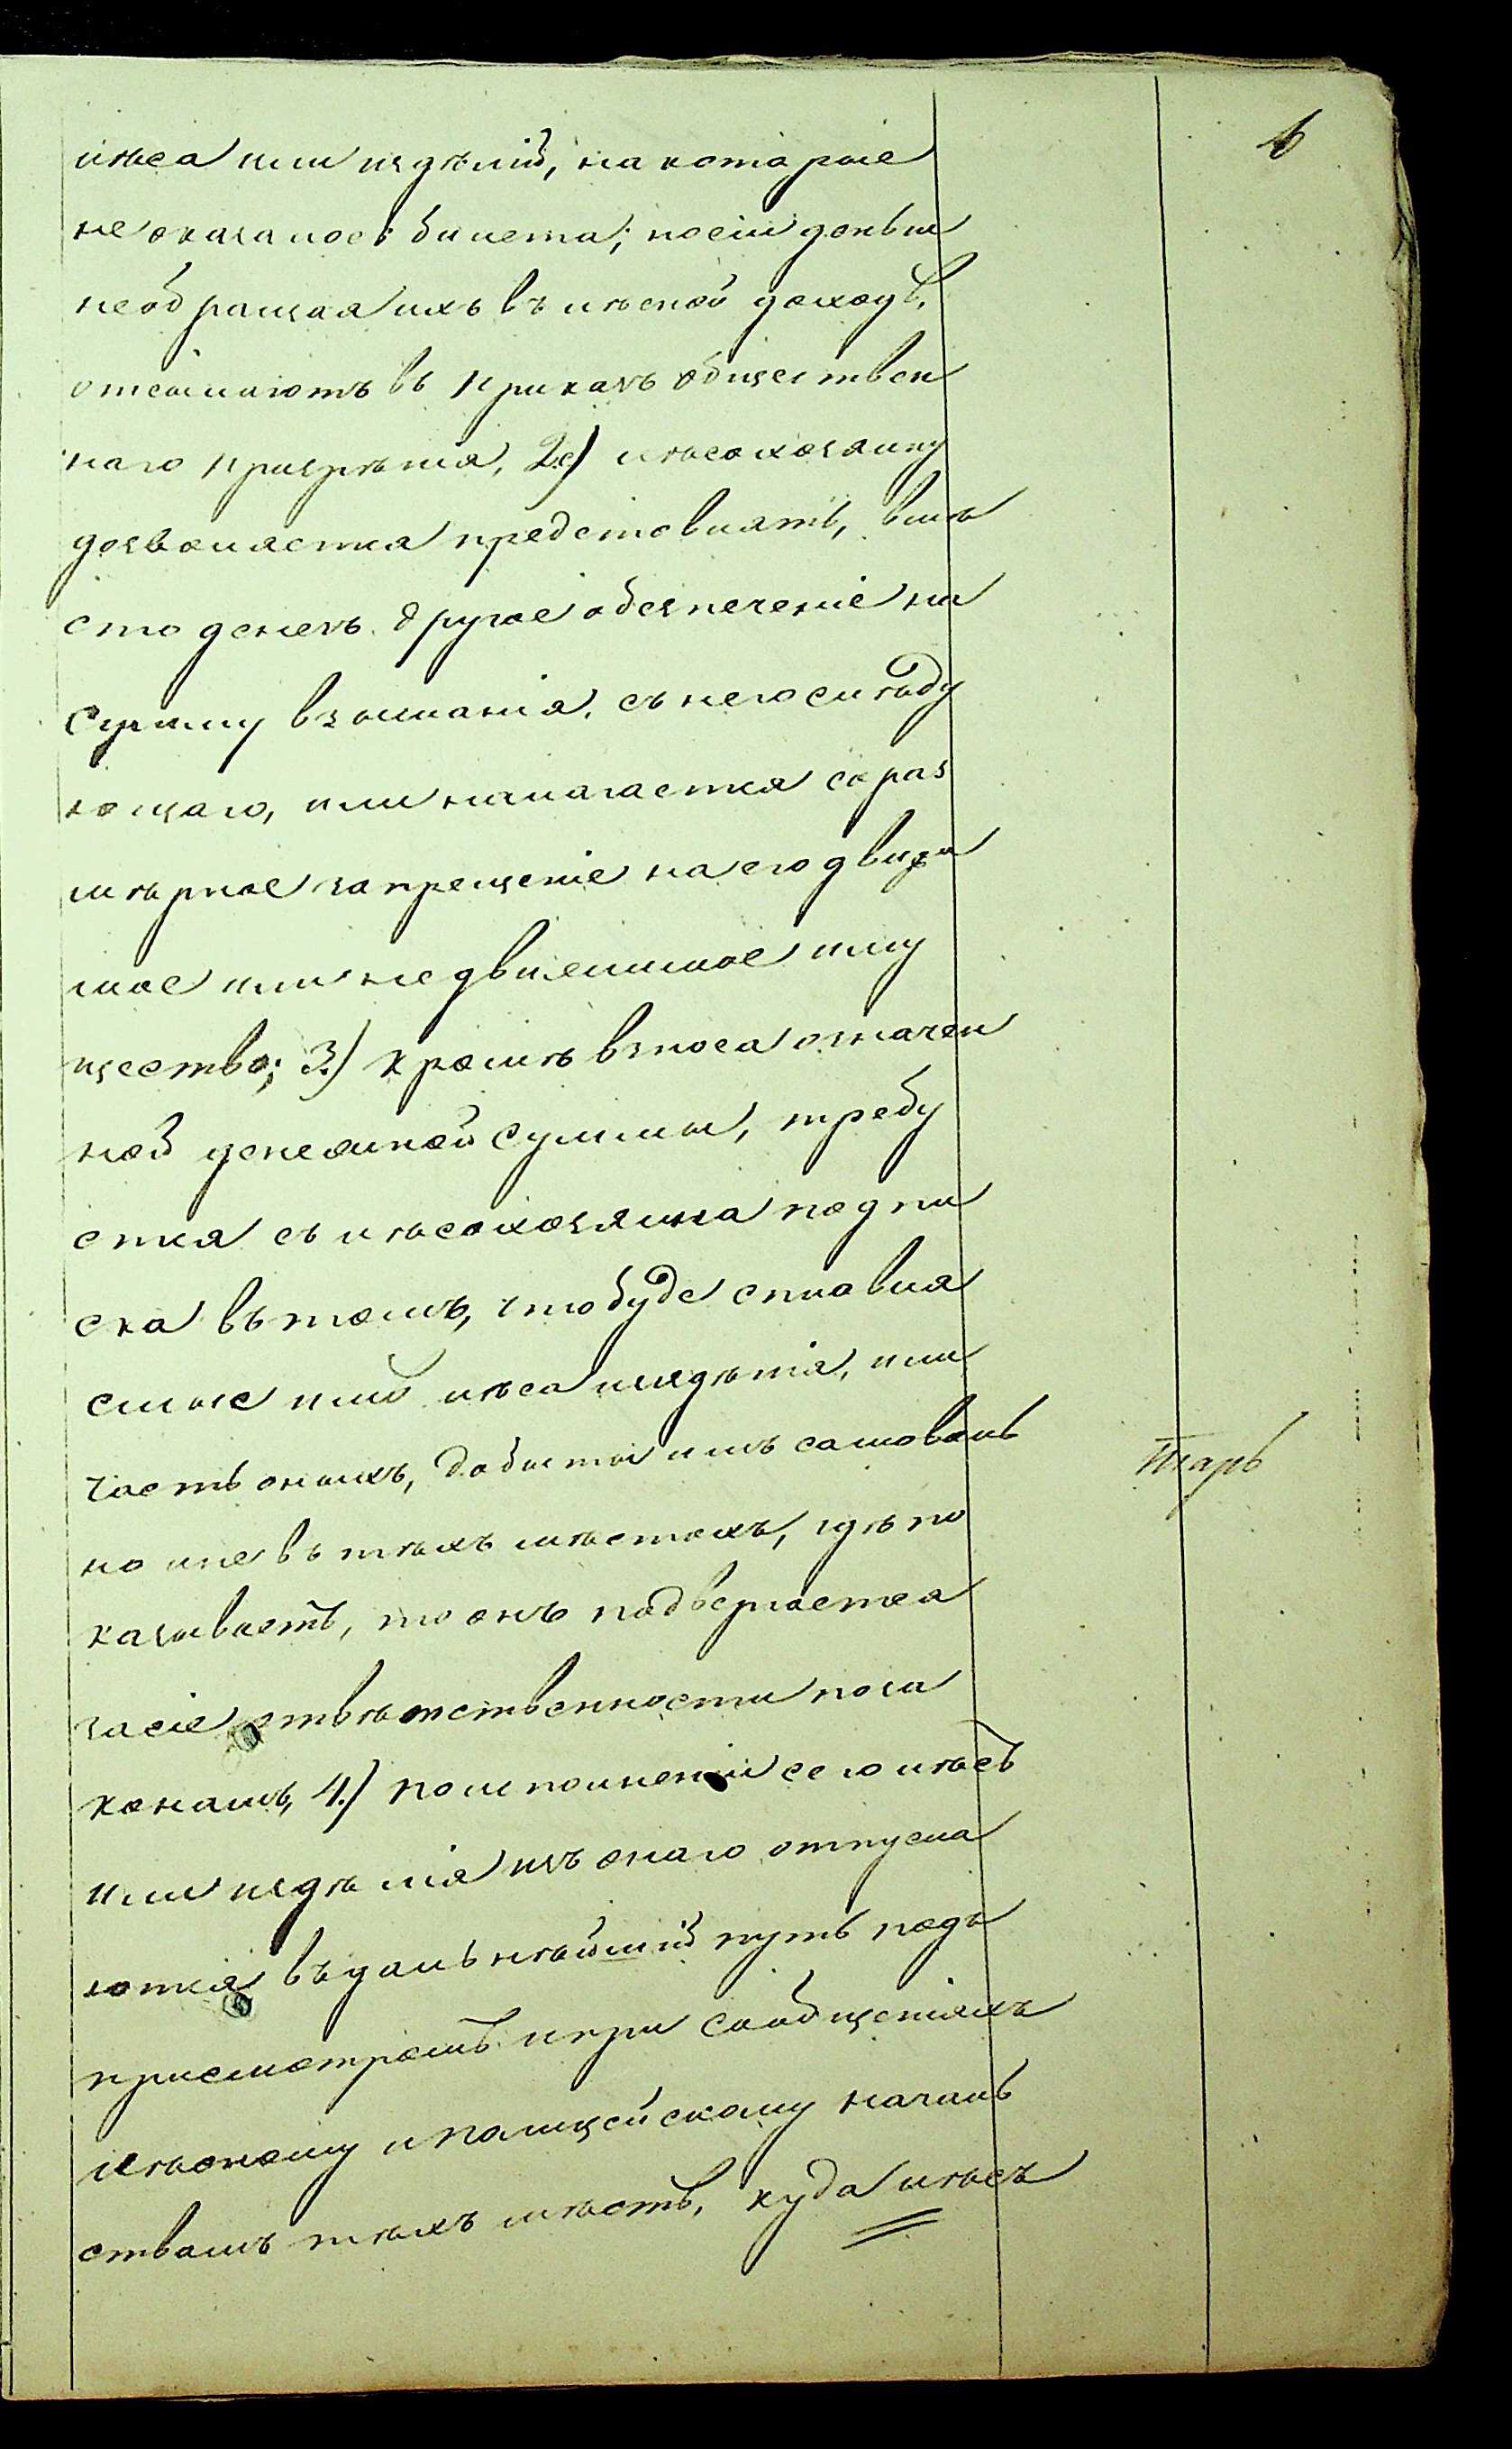 6
лѣса или издѣлій, на которые
не оказалось билета; но сіи деньги
необращая ихъ въ лѣсной доходъ,
отсылаютъ въ приказъ обществен
наго призрѣнія, 2е) лѣсохозяину
дозволяется представлять, вмѣ
сто денегъ другое обезпеченіе на
сумму взысканія, съ него слѣду
ющаго, или налагается сораз
мѣрное запрещеніе на его движи
мое или недвижимое иму
щество; 3.) кромѣ взноса означен
ной денежной суммы, требу
ется съ лѣсохозяина подпи
ска въ томъ, что буде сплавля
емые имъ лѣса издѣлія, или
часть оныхъ, добыты имъ самоволь
но или въ тѣхъ мѣстахъ, гдѣ по
казываетъ, то онъ подвергается
за сіе отвѣтственности по за
конамъ, 4.) по исполненіи сего лѣсъ
или издѣлія изъ онаго отпуска
ются въ дальнѣйшій путь подъ
присмотромъ и при сообщеніяхъ
лѣсному и полицейскому началь
ствамъ тѣхъ мѣстъ, куда лѣсъ